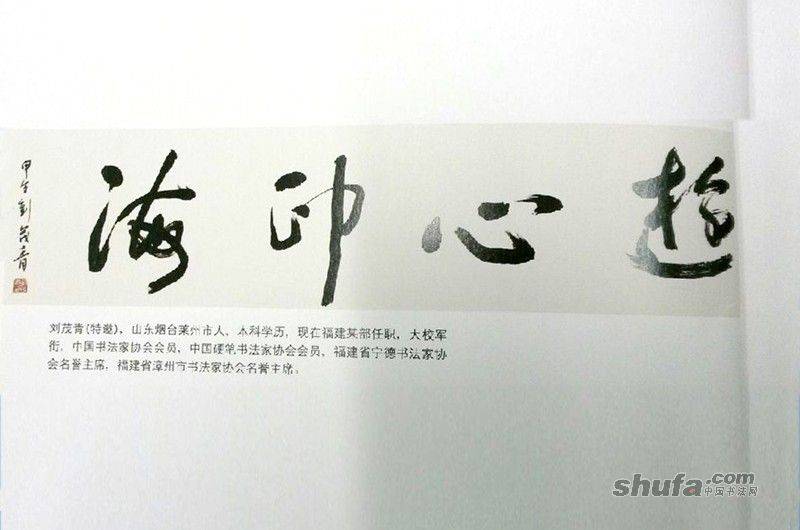 遊心印海
甲午刘茂青
刘茂青(特邀)，山东烟台莱州市人，本科学历，现在福建某部任职，大校军
衔，中国书法家协会会员，中国硬笔书法家协会会员，福建省宁德书法家协
会名誉主席，福建省漳州市书法家协会名誉主席。
shufa.com
中国书法网